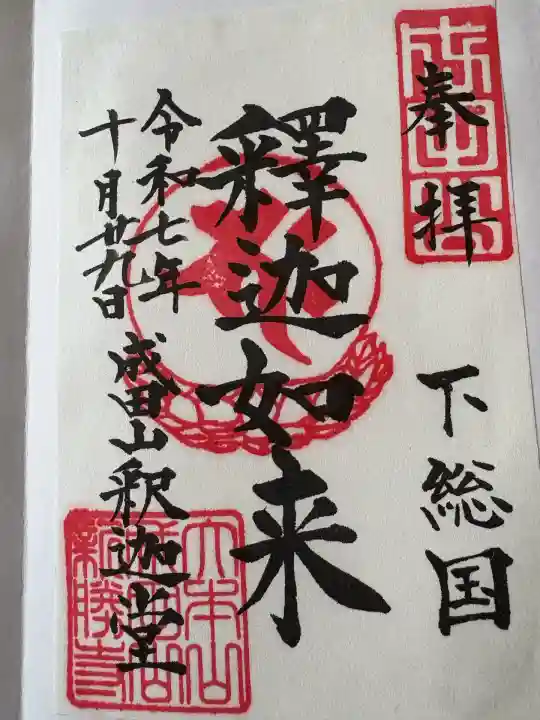 奉拝
下総国
釋迦如来
令和七年
十月廿九日
成田山釈迦堂
成田山
大本山
新勝寺